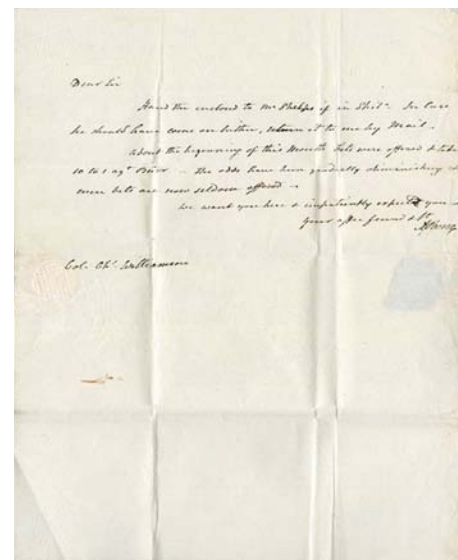 Dear Sir
Hand the enclosed to Mr Phelps if in Phila. In Case
he should have come on hither, return it to me by Mail.
about the beginning of this Month bets were offered &
10 to 1 agt Burr - the odds have been gradually diminishing &
even bets are now seldom offered -
we want you here & impatiently expect you -
your affec friend & St
Col. Chs. Williamson